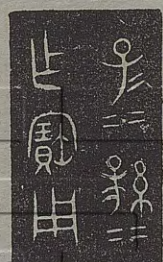 子₌孫₌
之寶用